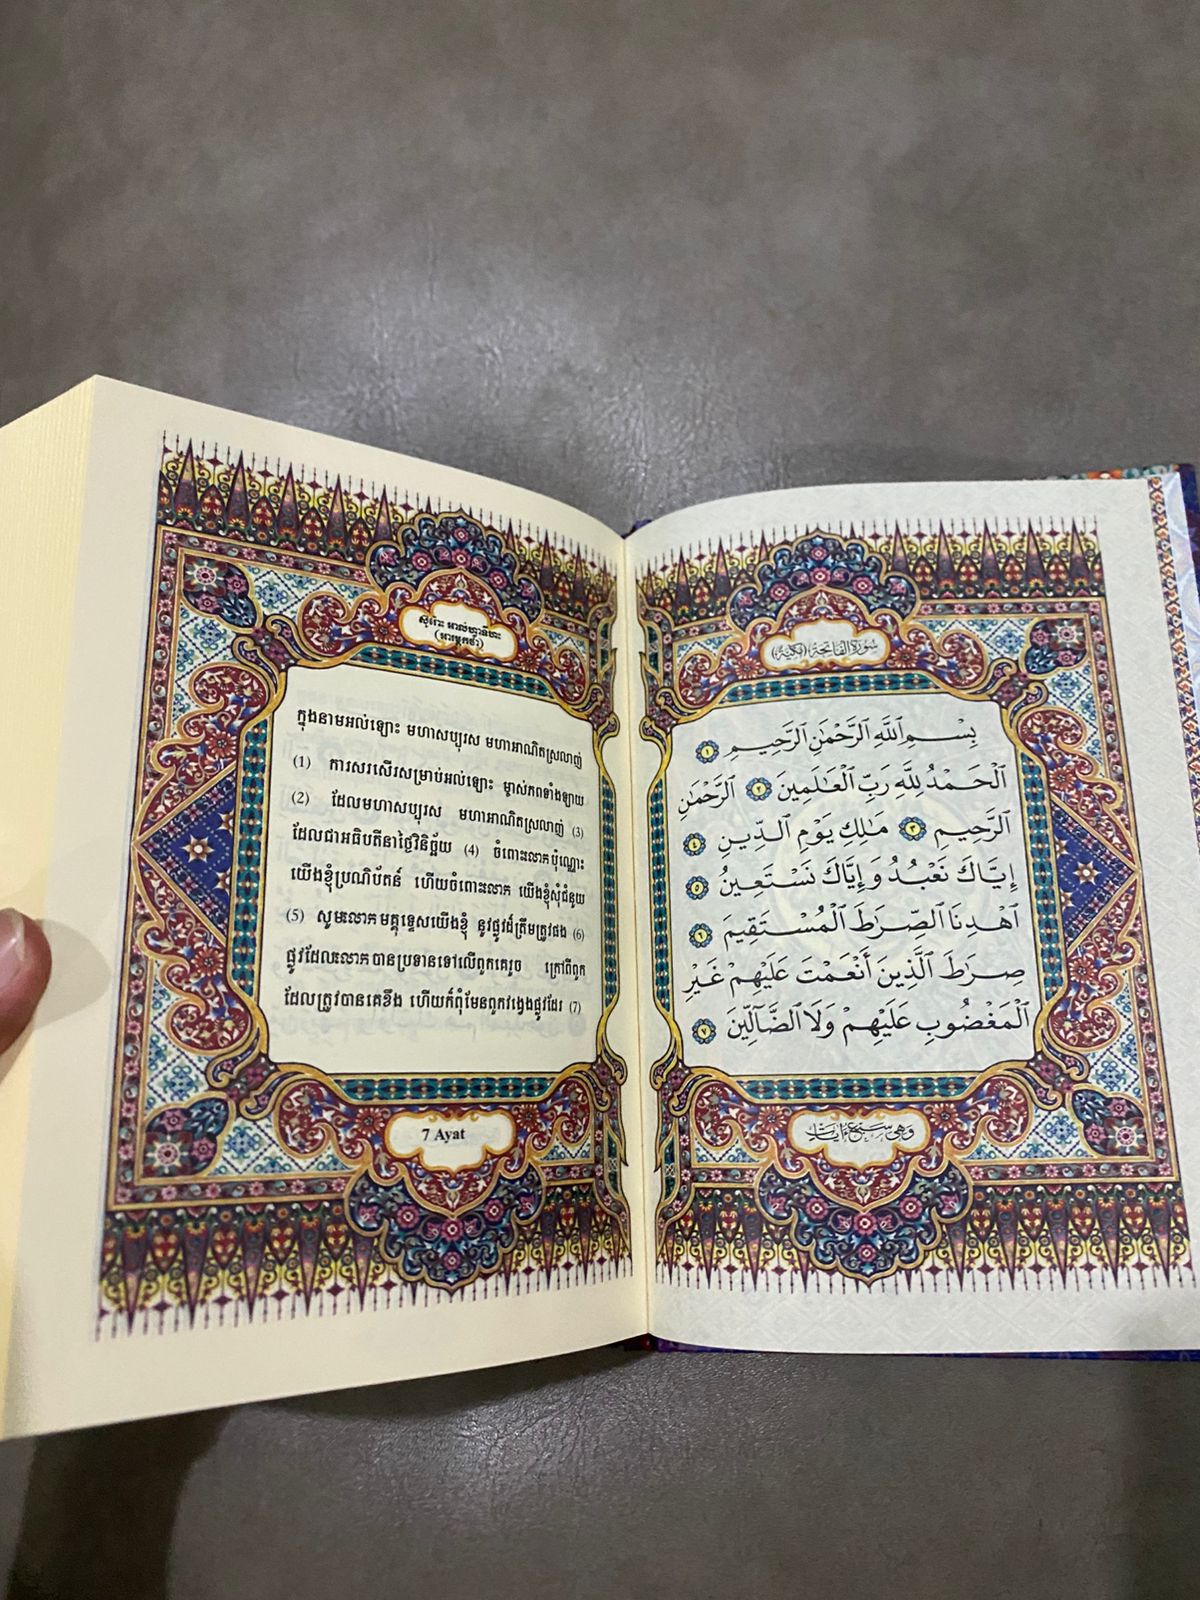 ស៊ូរ៉ោះ អាល់ហ្វាទីហះ
(អារម្ភកថា)
ក្នុងនាមអល់ឡោះ មហាសប្បុរស មហាអាណិតស្រលាញ់
(1) ការសរសើរសម្រាប់អល់ឡោះ ម្ចាស់ភពទាំងឡាយ
(2) ដែលមហាសប្បុរស មហាអាណិតស្រលាញ់ (3)
ដែលជាអធិបតីនាថ្ងៃវិនិច្ឆ័យ (4) ចំពោះលោកប៉ុណ្ណោះ
យើងខ្ញុំប្រណិប័តន៍ ហើយចំពោះលោក យើងខ្ញុំសុំជំនួយ
(5) សូមលោកមគ្គុទ្ទេសយើងខ្ញុំ នូវផ្លូវដ៏ត្រឹមត្រូវផង (6)
ផ្លូវដែលលោកបានប្រទានទៅលើពួកគេរួច ក្រៅពីពួក
ដែលត្រូវបានគេខឹង ហើយក៏ពុំមែនពួកវង្វេងផ្លូវដែរ (7)
7 Ayat
سورة الفاتحة (مكية)
بِسْمِ ٱللَّهِ ٱلرَّحْمَٰنِ ٱلرَّحِيمِ ١
ٱلْحَمْدُ لِلَّهِ رَبِّ ٱلْعَٰلَمِينَ ٢ ٱلرَّحْمَٰنِ
ٱلرَّحِيمِ ٣ مَٰلِكِ يَوْمِ ٱلدِّينِ ٤
إِيَّاكَ نَعْبُدُ وَإِيَّاكَ نَسْتَعِينُ ٥
ٱهْدِنَا ٱلصِّرَٰطَ ٱلْمُسْتَقِيمَ ٦
صِرَٰطَ ٱلَّذِينَ أَنْعَمْتَ عَلَيْهِمْ غَيْرِ
ٱلْمَغْضُوبِ عَلَيْهِمْ وَلَا ٱلضَّآلِّينَ ٧
وهي سبع ءايات